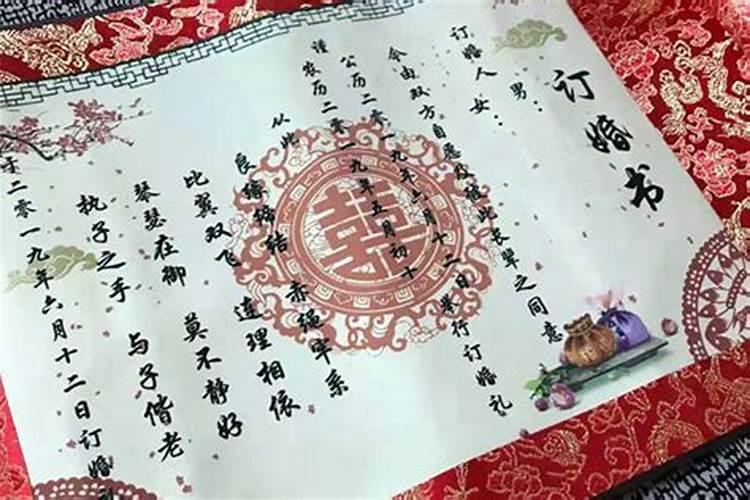 订婚书
订婚人 男：
女：
今由双方自愿及彼此长辈之同意
公历二零一九年六月十二日举行订婚礼
谨 农历二零一九年五月初十
从此 良缘缔结 赤绳牢系
比翼双飞 连理相依
琴瑟在御 莫不静好
执子之手 与子偕老
于二零一九年六月十二日订婚